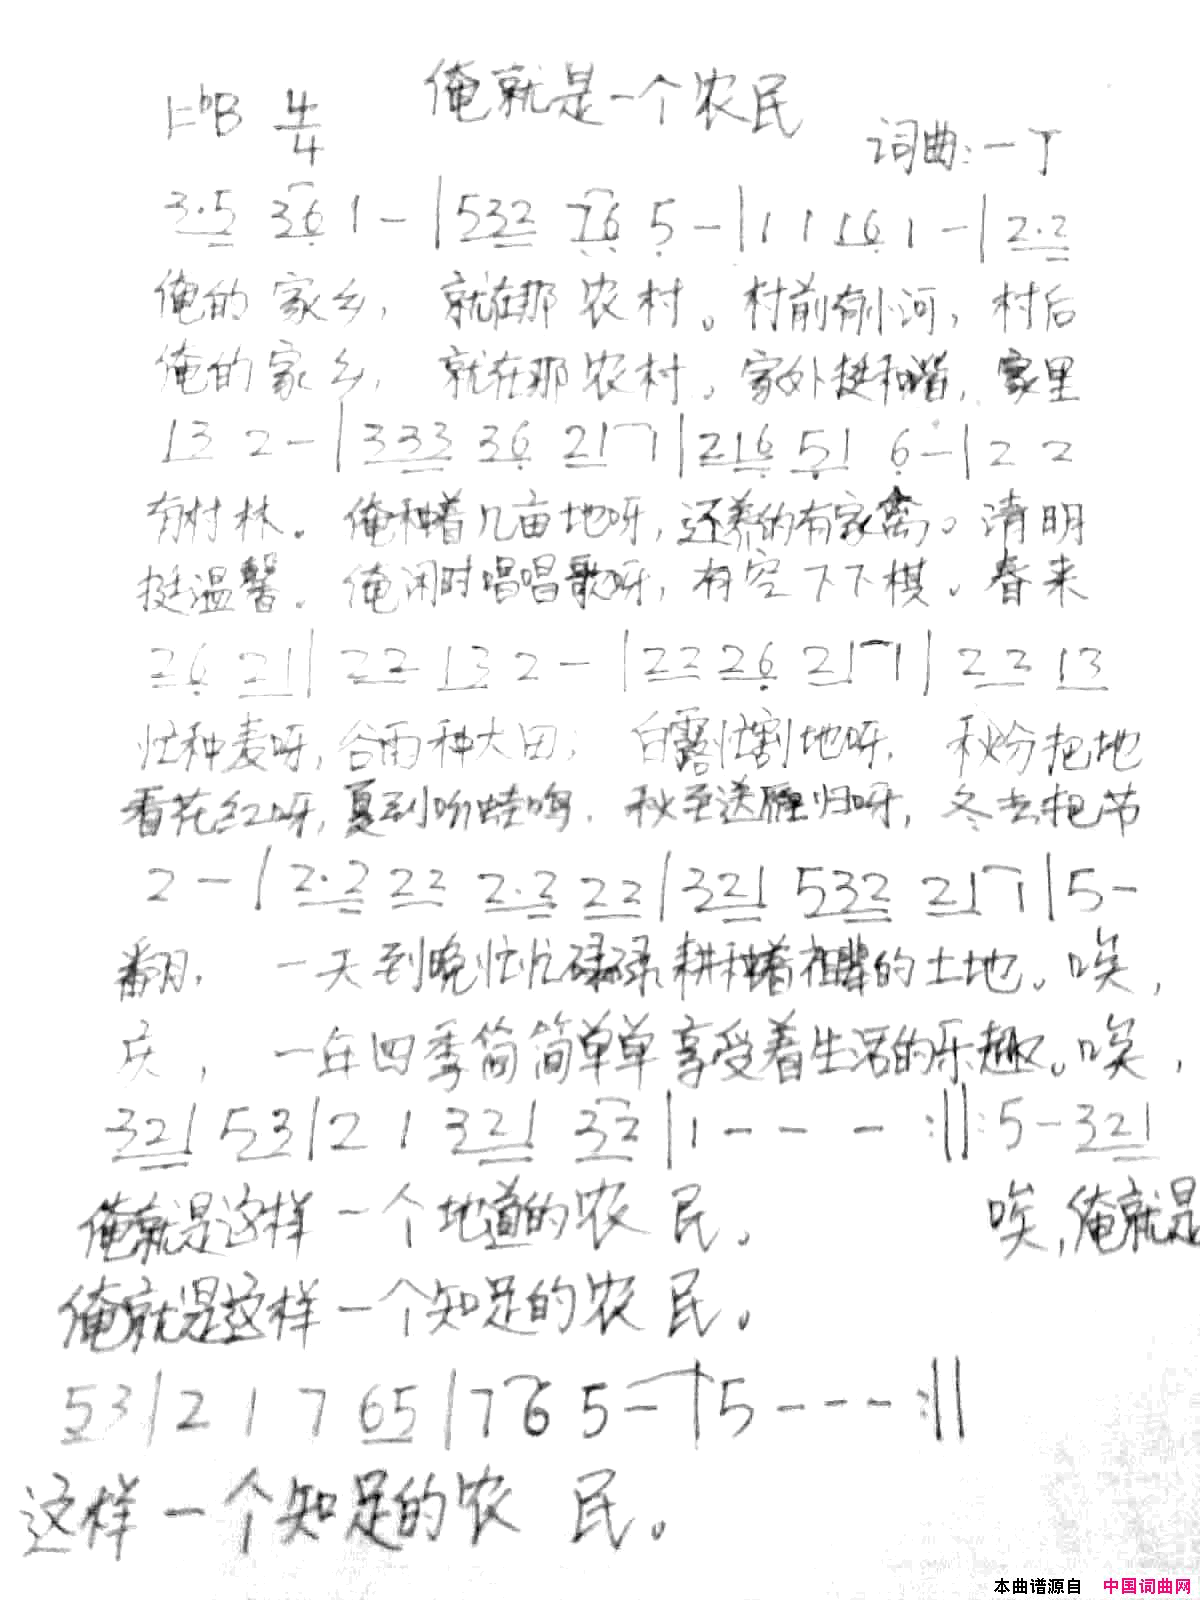 俺就是一个农民
1=bB 4/4
词曲:一丁
3·5 36 1 - | 532 76 5 - | 1 1 16 1 - | 2·2
俺的家乡, 就在那农村。村前有小河, 村后
俺的家乡, 就在那农村。家外挺和谐, 家里
13 2 - | 333 36 21 1 | 216 51 6 - | 2 2
有村林。俺种着几亩地呀, 还养的有家禽。清明
挺温馨。俺闲时唱唱歌呀, 有空下下棋。春来
26 21 | 22 13 2 - | 22 26 21 1 | 22 13
忙种麦呀, 谷雨种大田; 白露忙割地呀, 秋分把地
看花红呀, 夏到听蛙鸣. 秋至送雁归呀, 冬去把节
2 - | 2·2 22 2·2 22 | 321 532 21 1 | 5 -
翻, 一天到晚忙忙碌碌耕种着祖辈的土地。唉,
庆, 一年四季简简单单享受着生活的乐趣。唉,
321 53 | 2 1 321 32 | 1 - - - :||: 5 - 321
俺就是这样一个地道的农民。 唉, 俺就是
俺就是这样一个知足的农民。
53 | 2 1 7 65 | 7 6 5 - | 5 - - - :||
这样一个知足的农民。
本曲谱源自 中国词曲网